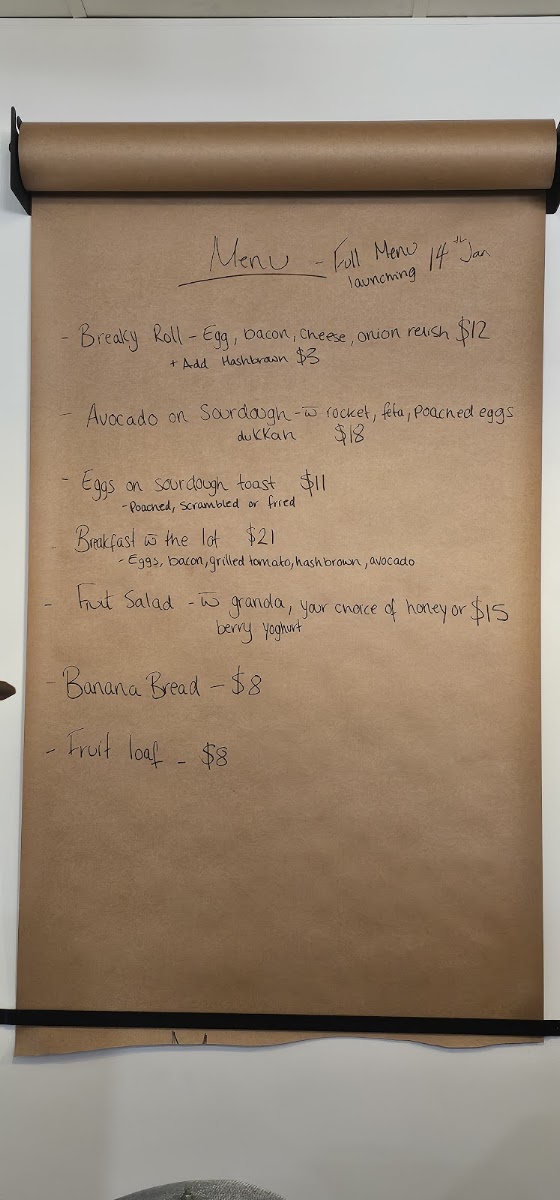 Menu - Full Menu 14th Jan
launching
- Breaky Roll - Egg, bacon, cheese, onion relish $12
+ Add Hashbrown $3
- Avocado on Sourdough - w̅ rocket, feta, poached eggs
dukkah $18
- Eggs on sourdough toast $11
- Poached, scrambled or fried
- Breakfast w̅ the lot $21
- Eggs, bacon, grilled tomato, hashbrown, avocado
- Fruit Salad - w̅ granola, your choice of honey or $15
berry yoghurt
- Banana Bread - $8
- Fruit loaf - $8